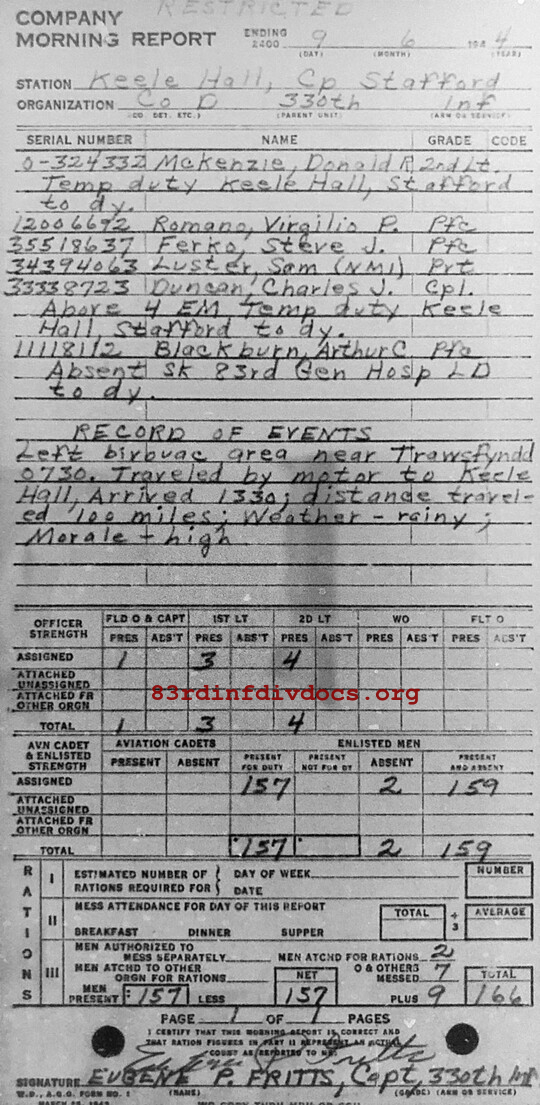 RESTRICTED
COMPANY
MORNING REPORT ENDING 2400 9 6 1944
(DAY) (MONTH) (YEAR)
STATION Keele Hall, Cp Stafford
ORGANIZATION Co D 330th Inf
(CO DET. ETC.) (PARENT UNIT) (ARM OR SERVICE)
SERIAL NUMBER NAME GRADE CODE
O-324332 McKenzie, Donald R 2nd Lt.
Temp duty Keele Hall, Stafford
to dy.
12006692 Romano, Virgilio P. Pfc
35518637 Ferko, Steve J. Pfc
34394063 Luster, Sam (NMI) Prt
33338723 Duncan, Charles J. Cpl.
Above 4 EM, Temp duty Keele
Hall, Stafford to dy.
11118112 Blackburn, Arthur C Pfc
Absent Sk 83rd Gen Hosp LD
to dy.
RECORD OF EVENTS
Left birbuac area near Trawsfyndd
0730. Traveled by motor to Keele
Hall, Arrived 1330; distande travel-
ed 100 miles; Weather - rainy;
Morale - high
OFFICER STRENGTH FLD O & CAPT 1ST LT 2D LT WO FLT O
PRES ABS'T PRES ABS'T PRES ABS'T PRES ABS'T PRES ABS'T
ASSIGNED 1 3 4
ATTACHED UNASSIGNED
83rdinfdivdocs.org
ATTACHED FR OTHER ORGN
TOTAL 1 3 4
AVN CADET & ENLISTED STRENGTH AVIATION CADETS ENLISTED MEN
PRESENT ABSENT PRESENT FOR DUTY PRESENT NOT FOR DY ABSENT PRESENT AND ABSENT
ASSIGNED 157 2 159
ATTACHED UNASSIGNED
ATTACHED FR OTHER ORGN
TOTAL 157 2 159
RATIONS
I ESTIMATED NUMBER OF RATIONS REQUIRED FOR { DAY OF WEEK DATE NUMBER
II MESS ATTENDANCE FOR DAY OF THIS REPORT
BREAKFAST DINNER SUPPER TOTAL ÷ 3 AVERAGE
III MEN AUTHORIZED TO MESS SEPARATELY MEN ATCHD FOR RATIONS 2
MEN ATCHD TO OTHER ORGN FOR RATIONS NET O & OTHERS MESSED 7 TOTAL
MEN PRESENT 157 LESS 157 PLUS 9 166
PAGE 1 OF 1 PAGES
I CERTIFY THAT THIS MORNING REPORT IS CORRECT AND
THAT RATION FIGURES IN PART II REPRESENT AN ACTUAL
COUNT AS REPORTED TO ME.
SIGNATURE EUGENE P. FRITTS, Capt, 330th Inf
W.D., A.G.O. FORM NO. 1 (NAME) (GRADE) (ARM OR SERVICE)